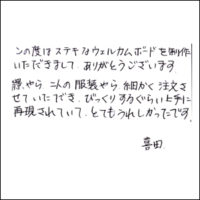 この度は ステキなウェルカムボードを制作
いただきまして、ありがとうございます。
やら 二人の服装やら 細かく 注文さ
せていただき、びっくりするぐらい上手に
再現されていて、とてもうれしかったです。
喜田